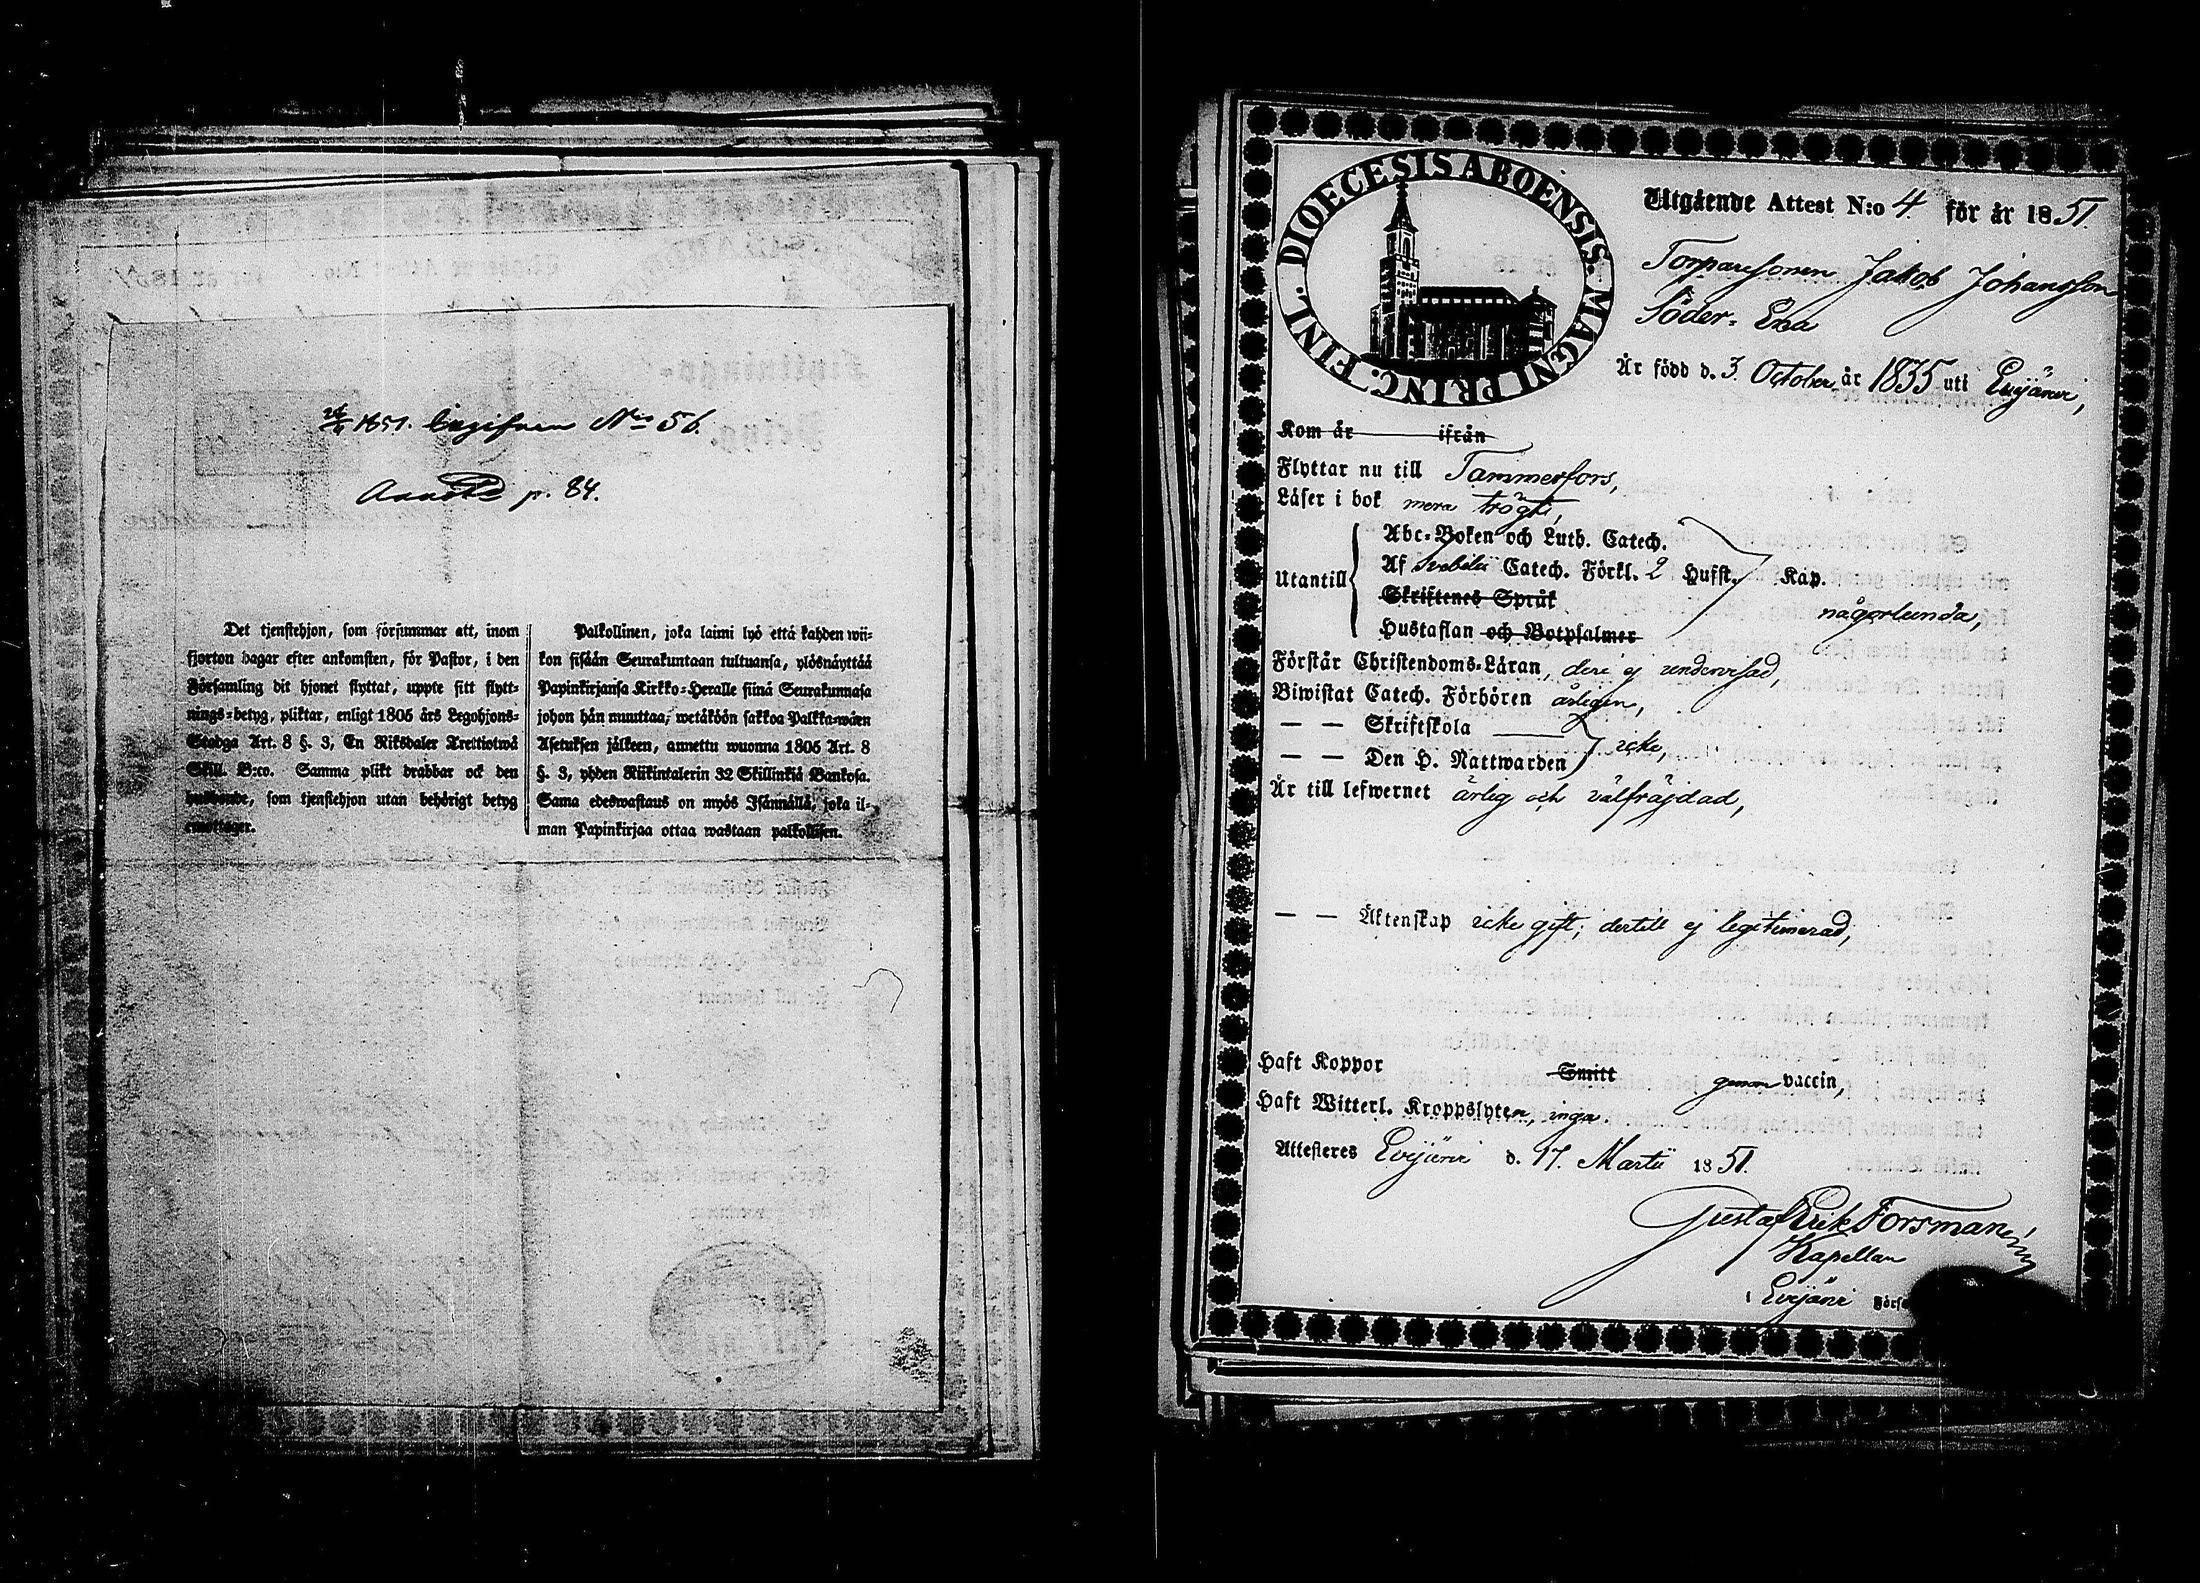 1851. Ingifven No 56.
Annoto p. 84.
Det tjenstehjon, som försummar att, inom
fjorton dagar efter ankomsten, för Pastor, i den
Församling dit hjonet flyttat, uppte sitt flytt-
nings-betyg, pliktar, enligt 1805 års Legohjons-
Stadga Art. 8 §. 3, En Riksdaler Trettiotwå
Skill. B:co. Samma plikt drabbar ock den
husbonde, som tjenstehjon utan behörigt betyg
emottager.
Palkollinen, joka laimi lyö että kahden wii-
kon sisään Seurakuntaan tultuansa, ylösnäyttää
Papinkirjansa Kirkko-Heralle siinä Seurakunnasa
johon hän muuttaa, wetäköön sakkoa Palkka-wäen
Asetuksen jälkeen, annettu wuonna 1805 Art. 8
§. 3, yhden Riikintalerin 32 Skillinkiä Bankosa.
Sama edeswastaus on myös Isännällä, joka il-
man Papinkirjaa ottaa wastaan palkollisen.
DIOECESIS ABOËNSIS. MAGNI PRINC. FINL.
Utgående Attest N:o 4. för år 1851.
Torparesonen Jakob Johansson
Söder-Exa
Är född d. 3 October år 1835 uti Evijärvi,
Kom år ifrån
Flyttar nu till Tammerfors,
Läser i bok mera trögt,
Utantill
Abc-Boken och Luth. Catech.
Af Svebelii Catech. Förkl. 2 Hufst. Kap.
Skriftenes Språk
någorlunda,
Hustaflan och Botpsalmer
Förstår Christendoms-Läran, deri ej undervisad,
Biwistat Catech. Förhören årligen,
— — Skriftskola
icke,
— — Den H. Nattwarden
Är till lefwernet ärlig och välfräjdad,
— — Äktenskap icke gift; dertill ej legitimerad,
Haft Koppor Smitt genom vaccin,
Haft Witterl. Kroppslyten, inga.
Attesteres Evijärvi d. 17. Martii 1851.
Gustaf Erik Forsman
Kapellan
i Evijärvi Förs